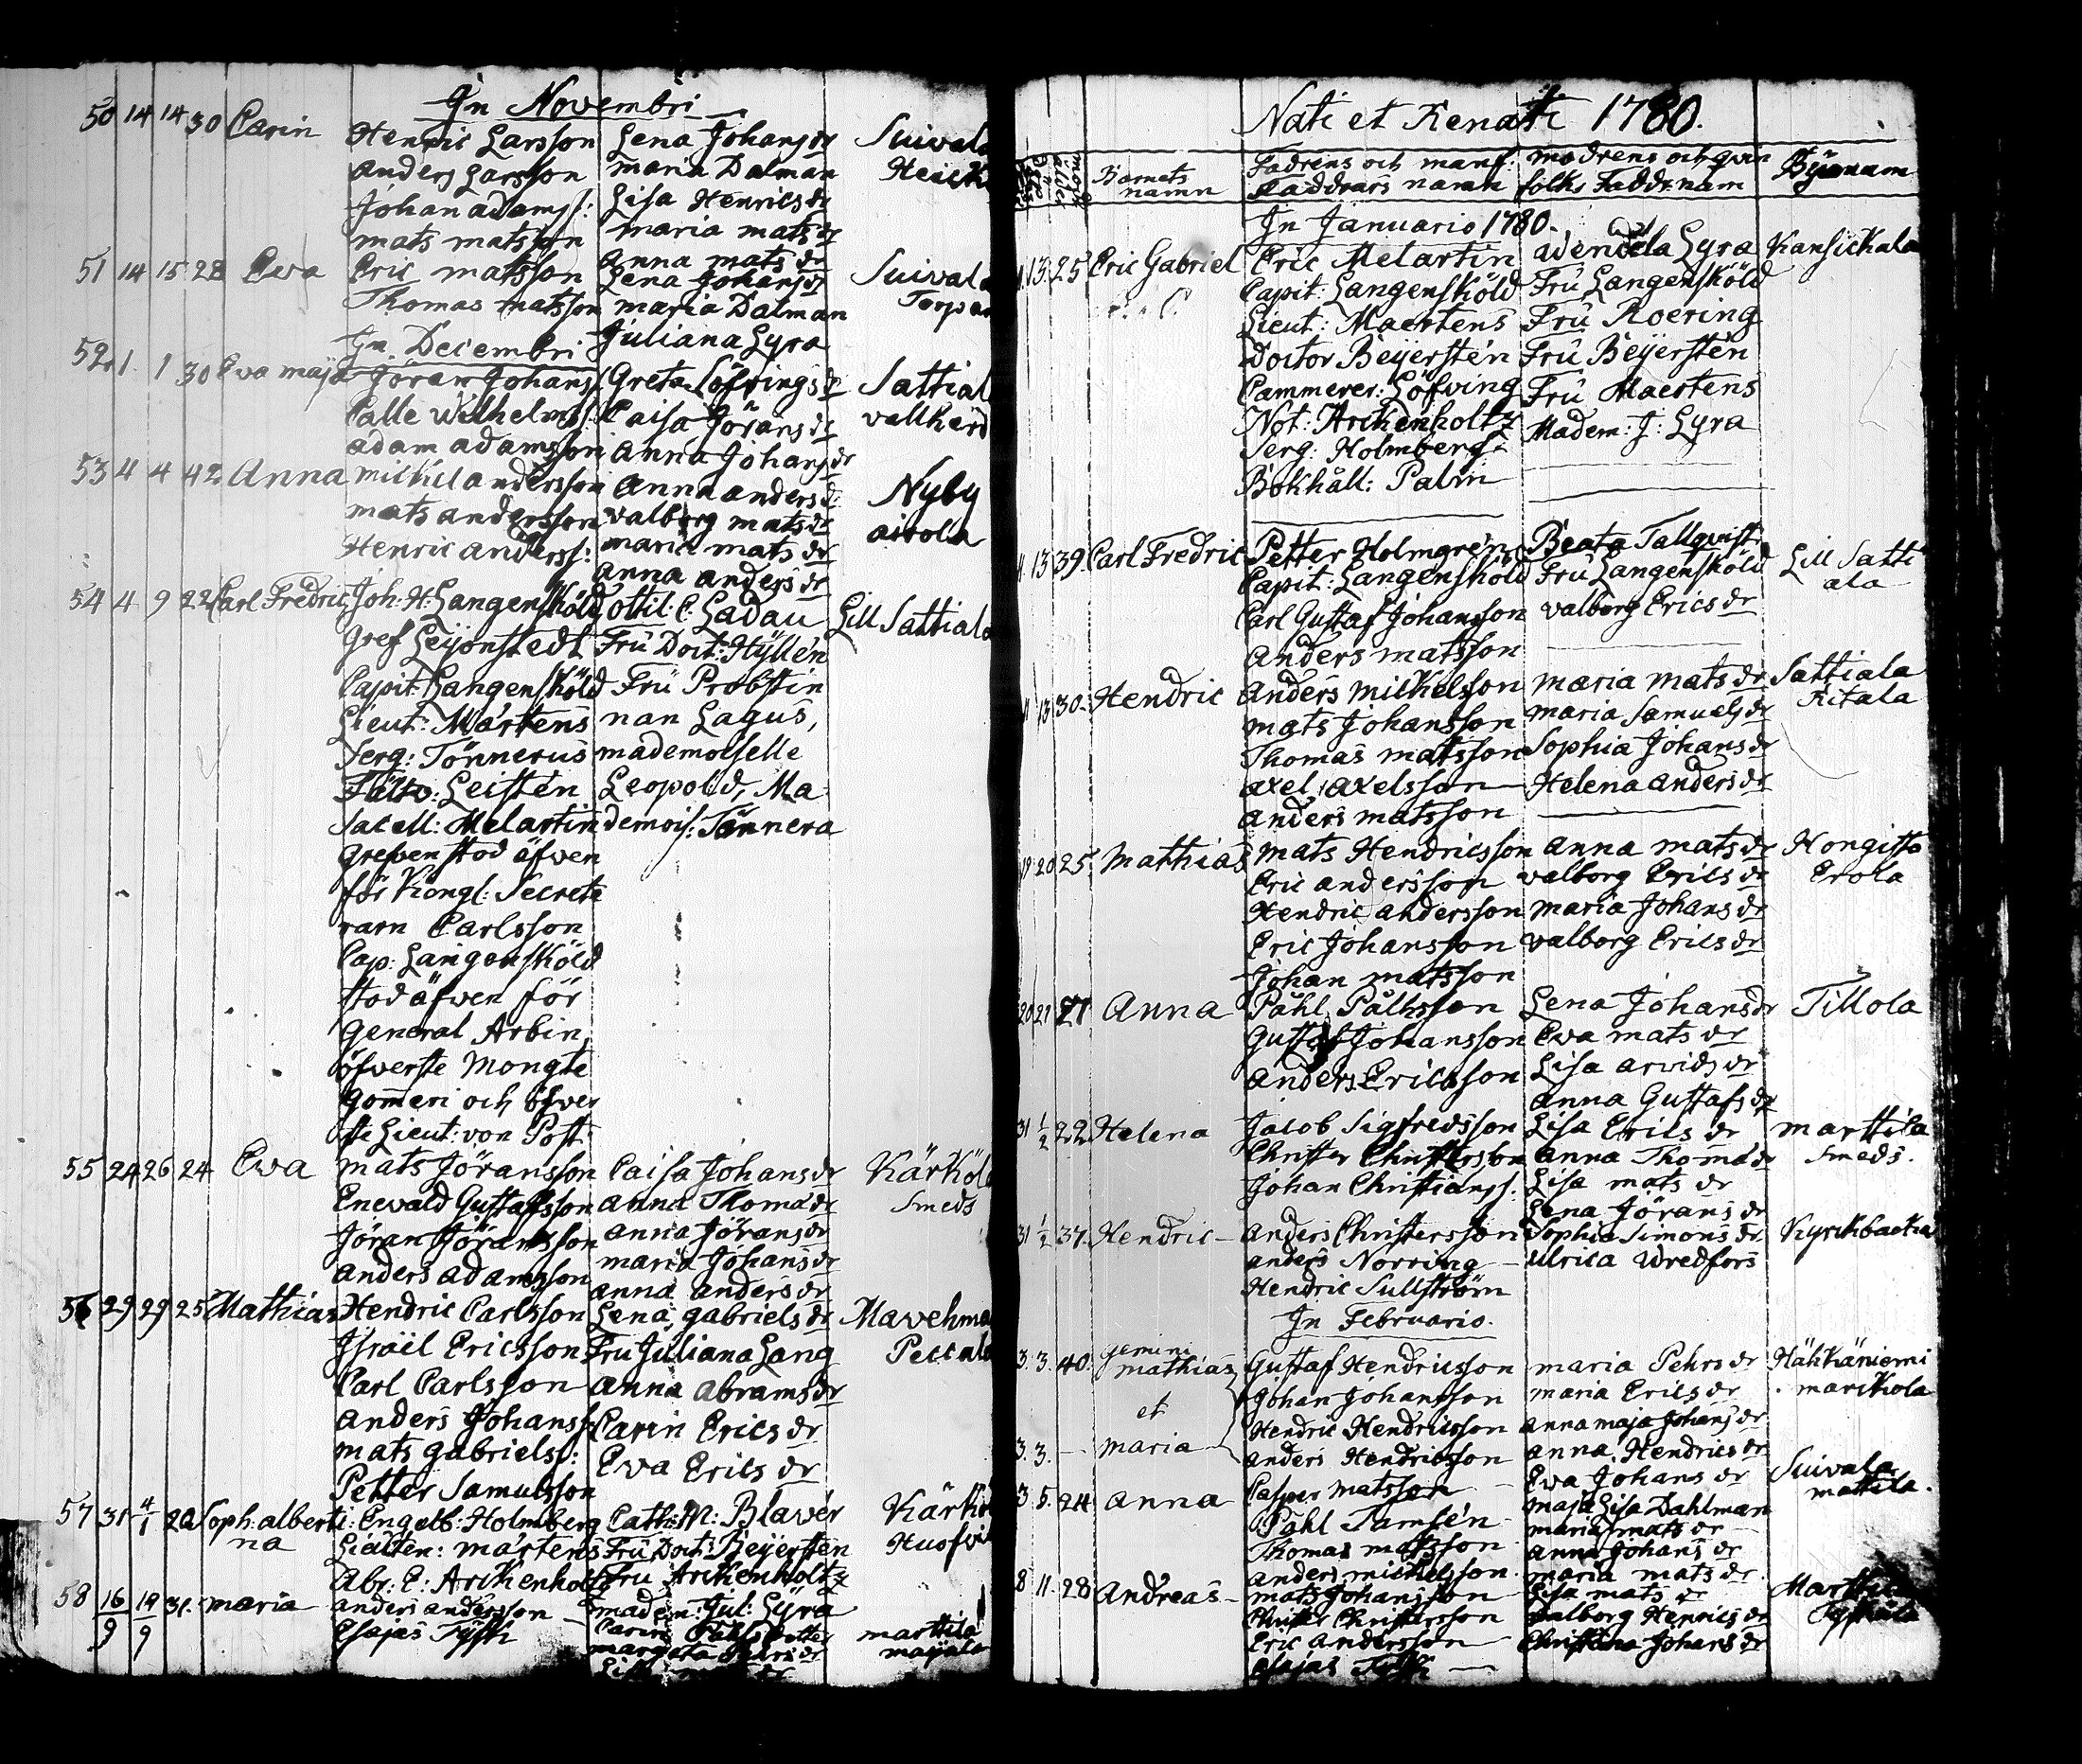 In Novembri
50 14 14 30 Carin Henric Larsson Lena Johansdr Suivala
Anders Larsson maria Dalman Heick
Johan adamss: Lisa Henricsdr
mats matsson maria matsdr
anna matsdr
51 14 15 28 Ewa Eric matsson Lena Johansdr Suivala
Thomas matsson maria Dalman
Juliana Lyra
In Decembri
52 1 1 30 Ewa maja Jöran Johanss: Greta Löfvingsdr Sattial
Calle Wilhelmss: Caisa Jöransdr vallherd
adam adamsson Anna Johansdr
53 4 4 42 Anna mickel andersson Anna andersdr Nyby
mats andersson valborg matsdr airola
Henric anderss: maria matsdr
anna andersdr
54 4 9 22 Carl Fredric Joh: H: Langensköld Ottil: C: Ladau Lill Sattiala
Gref Leijonstedt Fru Doct: Hyllén
Capit: Langensköld Fru Probstin
Lieut: Mårtens nan Lagus,
Serg: Tönnerus mademoiselle
Leistén Leopold, Ma
Sacell: Melartin demois: Tönnera
grefwen stod äfwen
för Kongl: Secrete
raren Carlsson
Cap: Langensköld
stod äfwen för
General Arbin,
öfverste Mongte
gom̄eri och öfwer
ste Lieut: von Post.
55 24 26 24 Ewa mats Jöransson Caisa Johansdr Kärköl
Enevald Gustafsson Anna Thomædr Smeds
Jöran Jöransson anna Jöransdr
anders adamsson maria Johansdr
anna andersdr
56 29 29 25 Mathias Hendric Carlsson Lena gabrielsdr Mavehma
Israël Ericsson Fru Juliana Lang
Carl Carlsson Anna Abramsdr
Anders Johanss: Carin Ericsdr
mats gabrielss: Ewa Ericsdr
Petter Samulsson
57 31 4/1 20 Soph: alberti Engelb: Holmberg Cath: M: Blavér Kärkö
na Lieuten: mårtens Fru Doct: Beijerstén
Abr: E: Arckenholtz Fru Arckenholtz
58 16/9 19/9 31. maria anders andersson madem: Jul: Lyra
Esajas Tysk Carin marttila
margeta
Nati et Renati 1780.
Barnets namn Fadrens och manf: Faddrars namn modrens och qvin folks Faddr. nam Byanam
In Januario 1780.
13 25 Eric Gabriel Eric Melartin Wendela Lyra Kansickala
Capit: Langensköld Fru Langensköld
Lieut: Maertens Fru Roering
Doctor Beijerstén Fru Beijerstén
Cammerer: Löfving Fru Maertens
Not: Arckenholtz Madem: J: Lyra
Serg: Holmberg
Bokhåll: Palm
11 13 39 Carl Fredric Petter Holmgrén Beata Tallqvist Lill Satti
Capit: Langensköld Fru Langensköld ala
Carl Gustaf Johansson valborg Ericsdr
Anders matsson
11 13 30 Hendric anders mickelsson maria matsdr Sattiala
mats Johansson maria Samuelsdr Kitala
Thomas matsson Sophia Johansdr
axel axelsson Helena andersdr
anders matsson
19 20 25 Matthias mats Hendricsson anna matsdr Hongisto
Eric andersson valborg Ericsdr Erola
Hendric andersson maria Johansdr
Eric Johansson valborg Ericsdr
Johan matsson
20 21 27 Anna Påhl Påhlsson Lena Johansdr Tillola
Gustaf Johansson Ewa matsdr
anders Ericsson Lisa arvidsdr
anna Gustafsdr
31 1/2 22 Helena Jacob Sigfredsson Lisa Ericsdr marttila
Christer Christersson anna Thomædr Smeds.
Johan Christianss: Lisa matsdr
Lena Jöransdr
31 1/2 37. Hendric anders Christersson Sophia Simonsdr Kyrckbacka
anders Norring ulrica Wredfors
Hendric Sullström
In Februario.
gemini
3. 3. 40. mathias Gustaf Hendricsson maria Pehrsdr Häkkäniemi
et Johan Johansson maria Ericsdr marckola
Hendric Hendricsson anna maja Johansdr
3. 3. maria anders Hendricsson anna Hendricsdr
3 5. 24 anna Casper matsson Ewa Johansdr Suivala
Påhl Tamsén maja Lisa Dahlman mattila.
Thomas matsson maria matsdr
anders mickelsson anna Johansdr
8 11 28 Andreas mats Johansson maria matsdr Marttila
Christer Christersson Lisa matsdr
Eric andersson valborg Henricsdr
Esajas Tysk Christina Johansdr